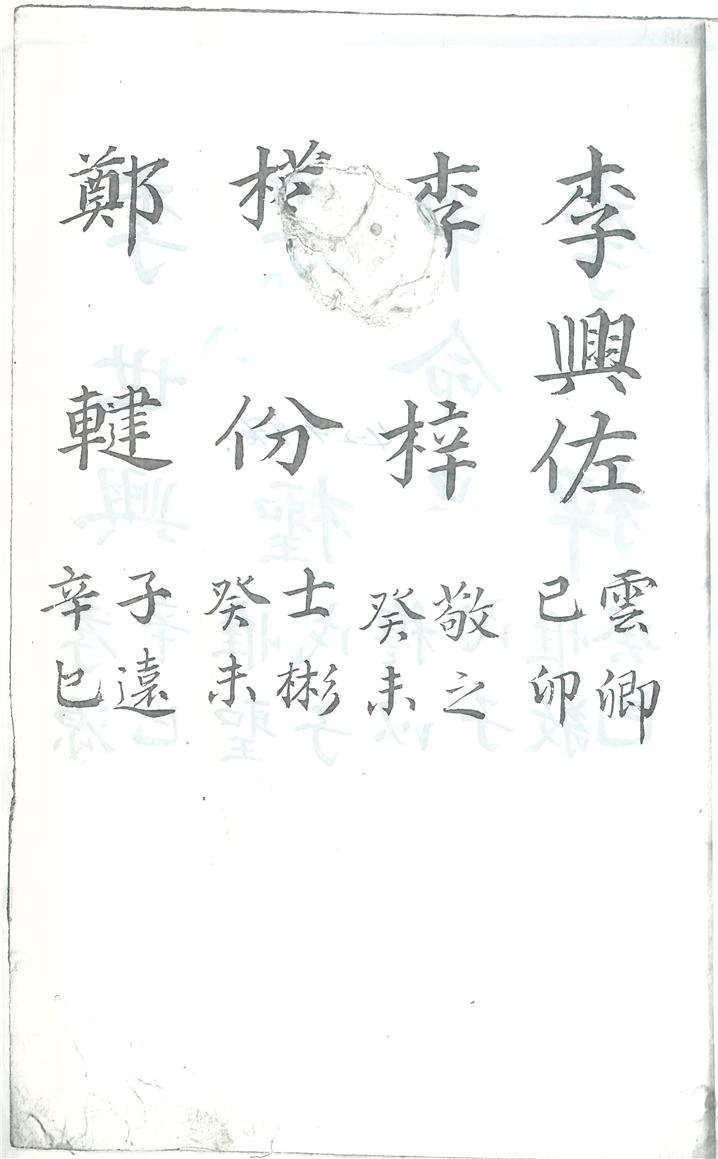 李興佐 雲卿 己卯
李梓 敬之 癸未
份 士彬 癸未
鄭 子遠 辛巳